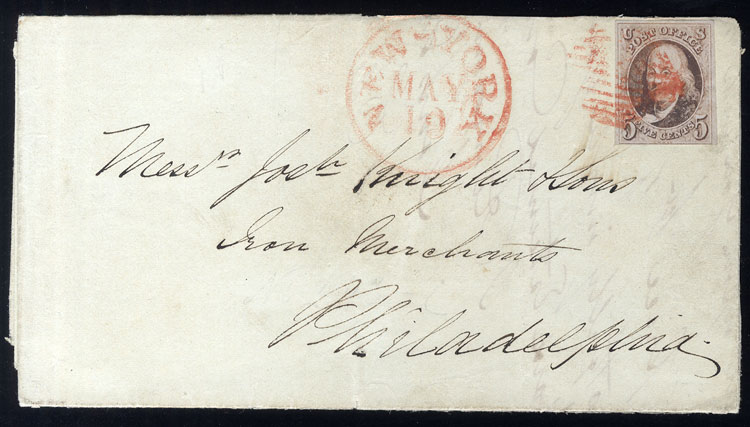 NEW-YORK
MAY
19
U S
POST OFFICE
5 FIVE CENTS 5
Messrs Josh Knight & Sons
Iron Merchants
Philadelphia